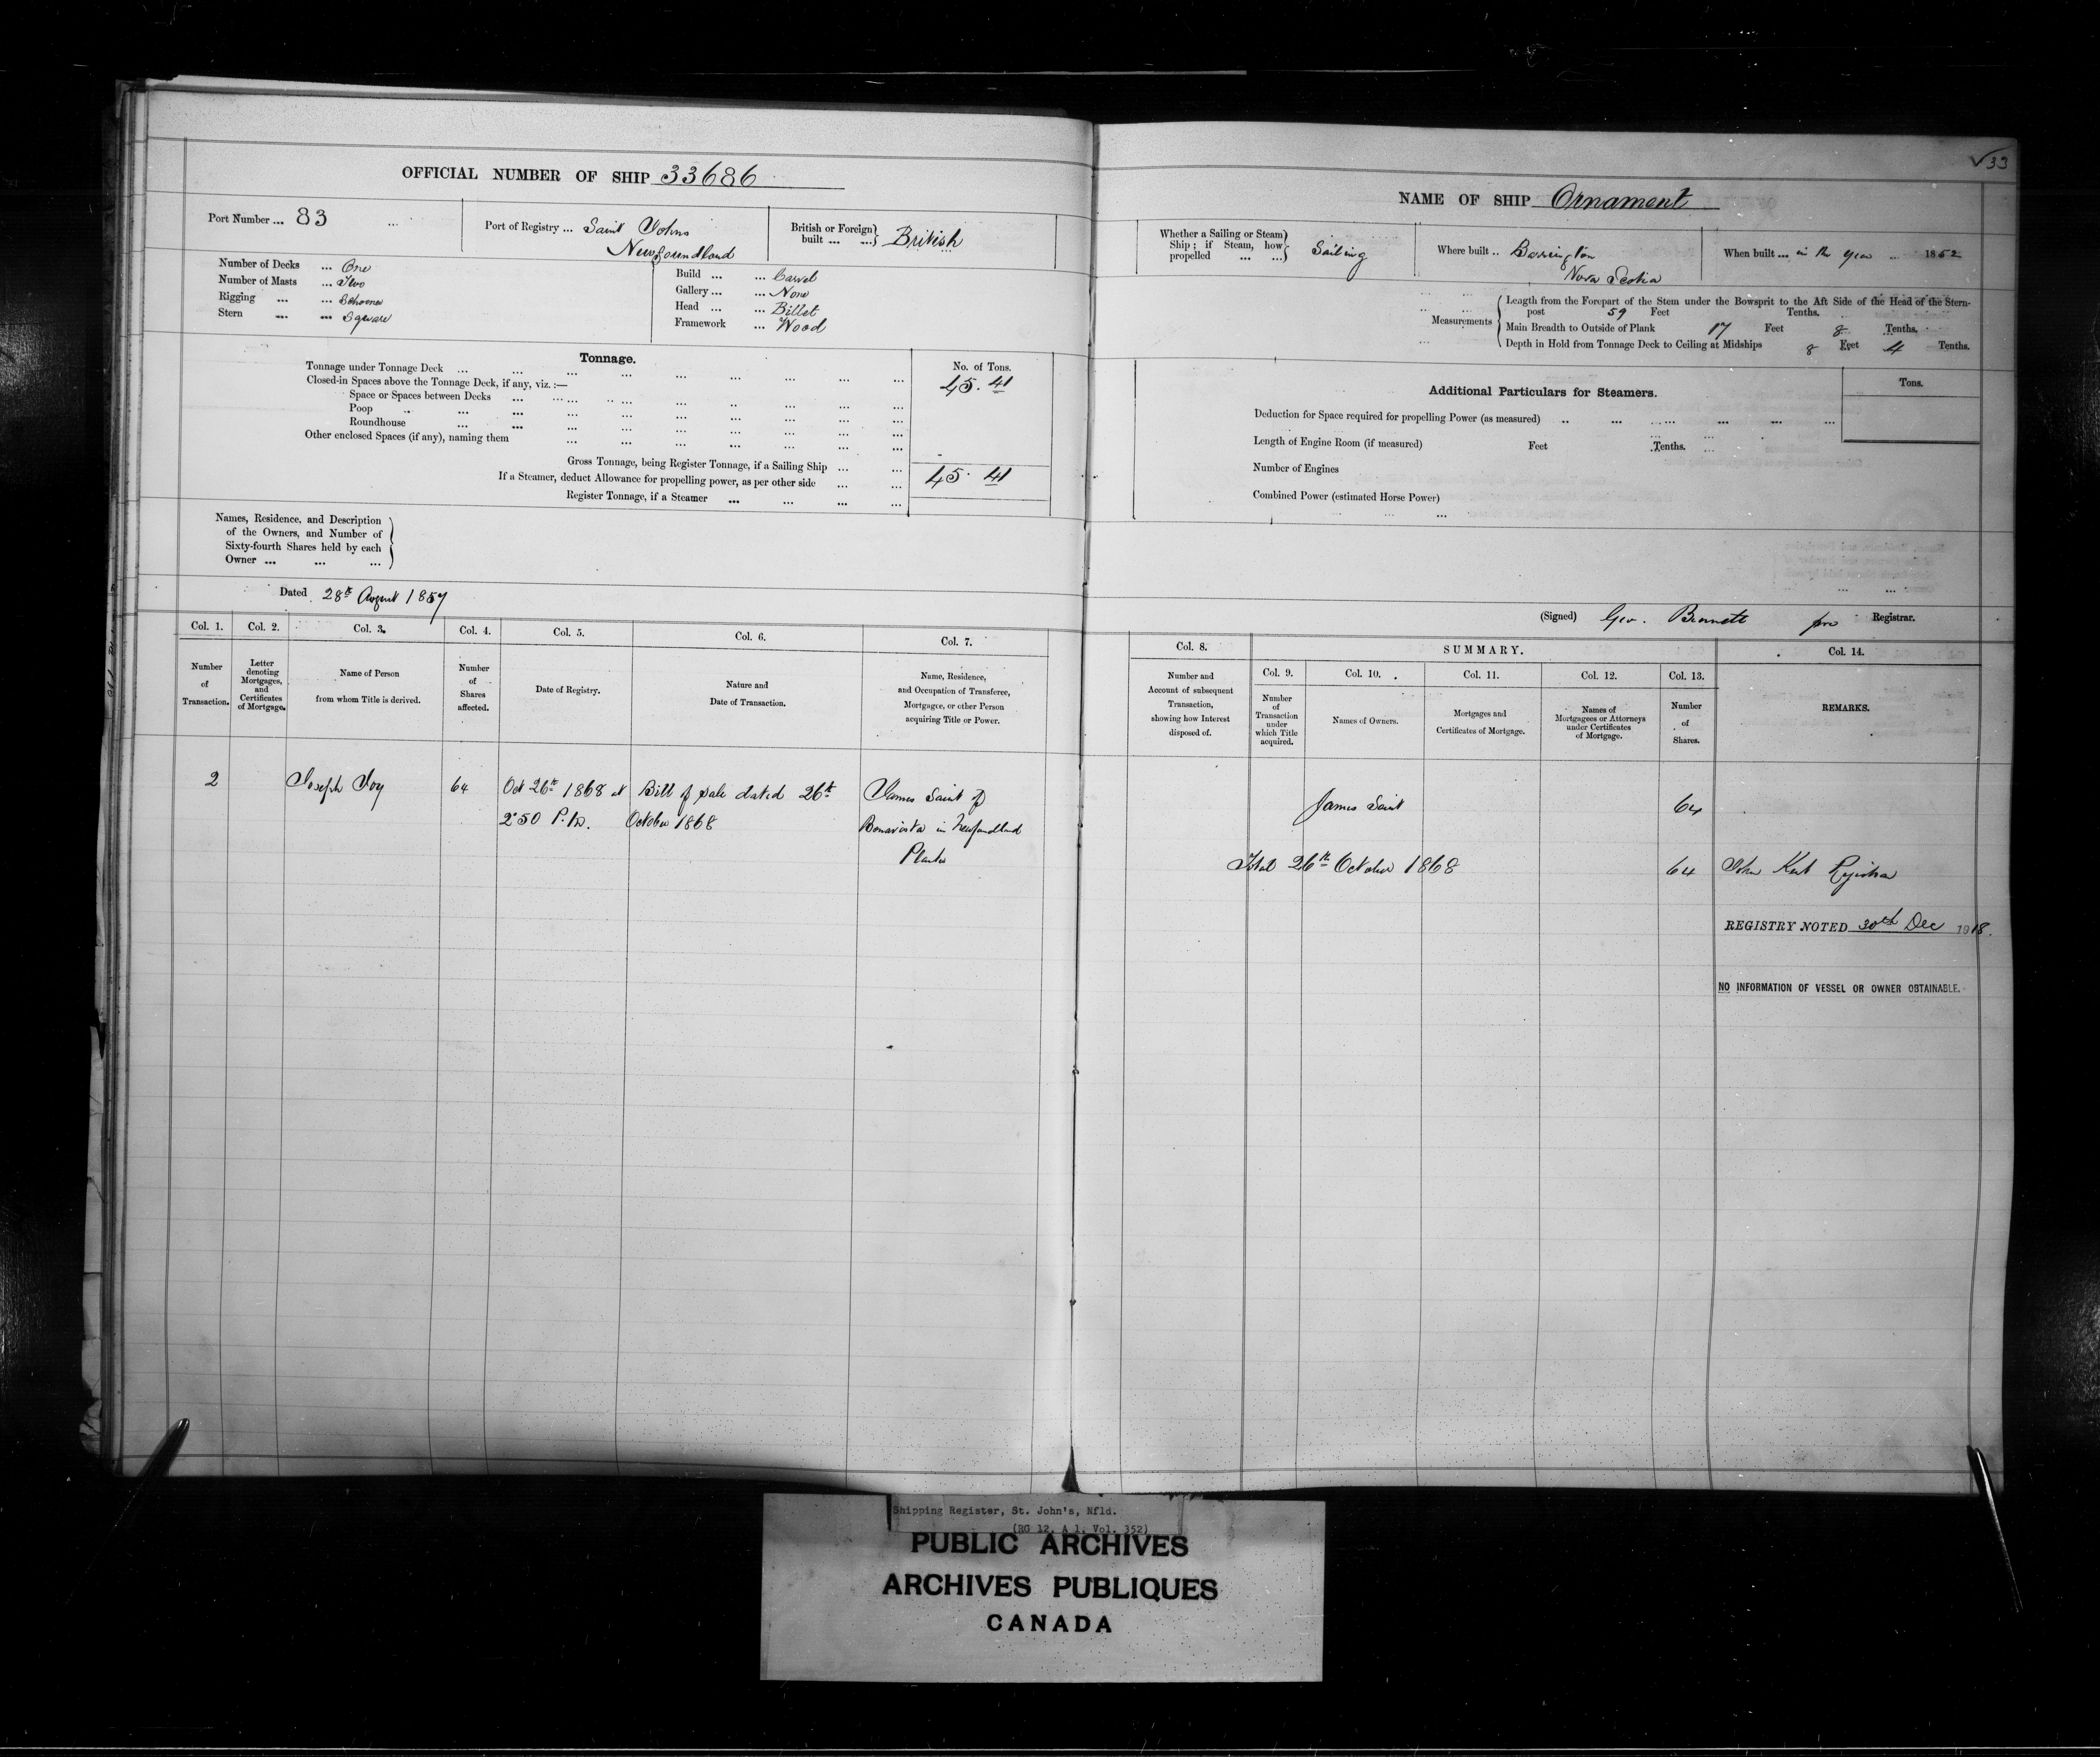 33
OFFICIAL NUMBER OF SHIP 33686
Port Number ... 83
Port of Registry ... Saint Johns
Newfoundland
British or Foreign
built ... ...} British
Number of Decks ... One
Number of Masts ... Two
Rigging ... ... Schooner
Stern ... ... Square
Build ... ... Carvel
Gallery ... ... None
Head ... ... Billet
Framework ... Wood
Tonnage.
No. of Tons.
Tonnage under Tonnage Deck ... 45.41
Closed-in Spaces above the Tonnage Deck, if any, viz. :—
Space or Spaces between Decks
Poop
Roundhouse
Other enclosed Spaces (if any), naming them
Gross Tonnage, being Register Tonnage, if a Sailing Ship ... ...
If a Steamer, deduct Allowance for propelling power, as per other side ... ... 45.41
Register Tonnage, if a Steamer ... ... ... ...
Names, Residence, and Description
of the Owners, and Number of
Sixty-fourth Shares held by each
Owner ... ... ...
Dated 28th August 1857
NAME OF SHIP Ornament
Whether a Sailing or Steam
Ship ; if Steam, how
propelled ... ...} Sailing
Where built .. Barrington
Nova Scotia
When built ... in the year ... 1852
Measurements
Length from the Forepart of the Stem under the Bowsprit to the Aft Side of the Head of the Stern-
post 59 Feet Tenths.
Main Breadth to Outside of Plank 17 Feet 8 Tenths.
Depth in Hold from Tonnage Deck to Ceiling at Midships 8 Feet 4 Tenths.
Additional Particulars for Steamers.
Tons.
Deduction for Space required for propelling Power (as measured)
Length of Engine Room (if measured) Feet Tenths.
Number of Engines
Combined Power (estimated Horse Power)
(Signed) Geo. Bennett pro Registrar.
Col. 1. Col. 2. Col. 3. Col. 4. Col. 5. Col. 6. Col. 7.
Number
of
Transaction.
Letter
denoting
Mortgages,
and
Certificates
of Mortgage.
Name of Person
from whom Title is derived.
Number
of
Shares
affected.
Date of Registry.
Nature and
Date of Transaction.
Name, Residence,
and Occupation of Transferee,
Mortgagee, or other Person
acquiring Title or Power.
2 Joseph Joy 64 Oct 26th 1868 at Bill of Sale dated 26th James Saint of
2.50 P.M. October 1868 Bonavista in Newfoundland
Planter
Col. 8. SUMMARY. Col. 14.
Col. 9. Col. 10. Col. 11. Col. 12. Col. 13.
Number and
Account of subsequent
Transaction,
showing how Interest
disposed of.
Number
of
Transaction
under
which Title
acquired.
Names of Owners.
Mortgages and
Certificates of Mortgage.
Names of
Mortgagees or Attorneys
under Certificates
of Mortgage.
Number
of
Shares.
REMARKS.
James Saint 64
Total 26th October 1868 64 John Kent Registrar
REGISTRY NOTED 30th Dec 1918.
NO INFORMATION OF VESSEL OR OWNER OBTAINABLE.
Shipping Register, St. John's, Nfld.
(RG 12, A 1, Vol. 352)
PUBLIC ARCHIVES
ARCHIVES PUBLIQUES
CANADA